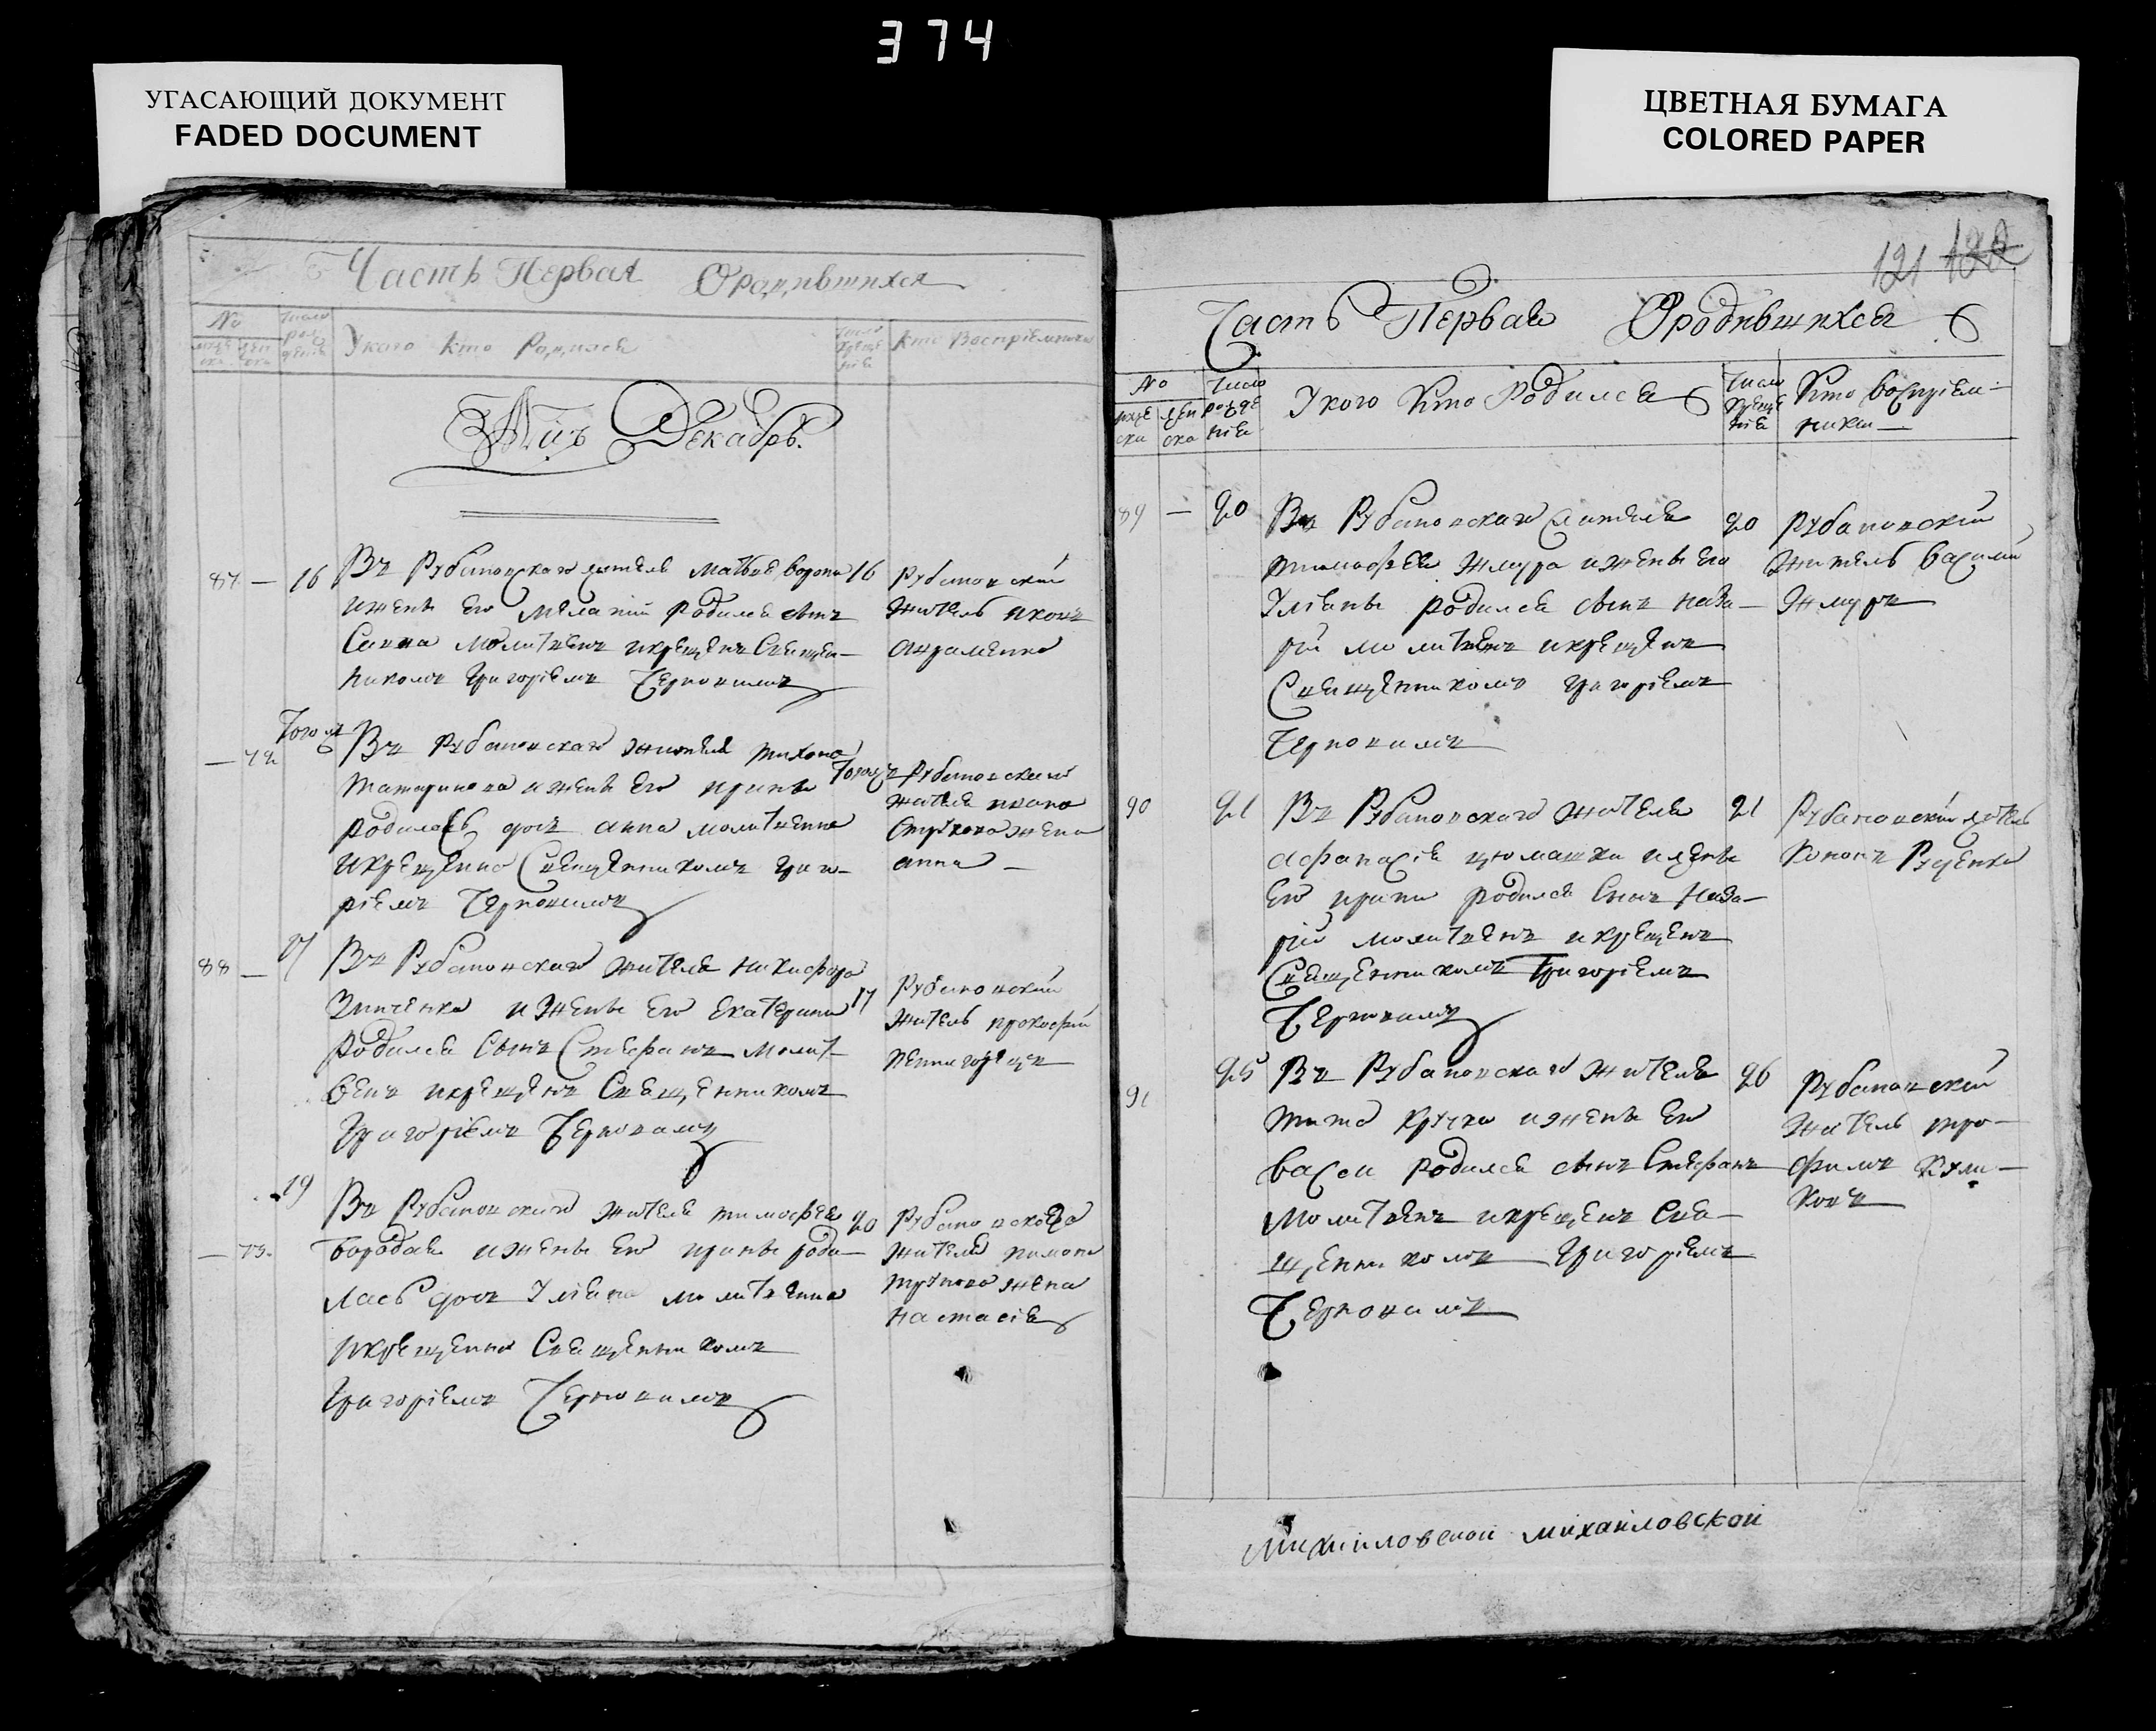 374
УГАСАЮЩИЙ ДОКУМЕНТ
FADED DOCUMENT
ЦВЕТНАЯ БУМАГА
COLORED PAPER
Часть Первая О родившихся
№
Число рож дения
У кого кто Родился
Число креще нія
Кто Воспріемники
мцъ Декабрь.
87 — 16 Въ Рубановскаго жителя матвѣя ворона 16
и жены его меланіи Родился сынъ
Савва молитвенъ и крещенъ Священ-
никомъ Григоріемъ Чернонимъ
Рубановскій
житель
— 72 Того ж Въ Рубановскаго жителя тихона
татаринова и жены его ирины Того ж
родилась дочь анна молитвенна
и крещенна Священникомъ григо-
ріемъ
Рубановскаго
жителя ивана
жена
анна —
88 — 17 Въ Рубановскаго жителя никифора
Зинченка и жены его екатерины 17
Родился Сынъ Стефанъ молит-
венъ и крещенъ Священникомъ
Григоріемъ
Рубановскій
житель прокофій
19 Въ Рубановскаго жителя тимофея 20
— 73. Бородая и жены его ирины роди-
лась дочь Уліана молитвенна
и крещенна Священникомъ
Григоріемъ
Рубановскаго
жителя
жена
настасія
121
Часть Первая О родившихся
№
Число рожде нія
У кого Кто Родился
Число креще нія
Кто воспріем-
ники —
89 — 20 Въ Рубановскаго жителя 20
тимофея Жмура и жены его
Уліаны родился сынъ наза-
рій молитвенъ и крещенъ
Священникомъ григоріемъ
Рубановскій
житель василій
Жмуръ
90 21 Въ Рубановскаго жителя 21
афанасія цюмашки и жены
его ирины родился Сынъ Наза-
рій молитвенъ и крещенъ
Священникомъ Григоріемъ
Рубановскій житель
Кононъ Руденко
91 25 Въ Рубановскаго жителя 26
тита Кручка и жены его
васси родился сынъ Стефанъ
молитвенъ и крещенъ Свя-
щенникомъ Григоріемъ
Рубановскій
житель тро-
фимъ Кули-
ковъ
михайловской михайловской